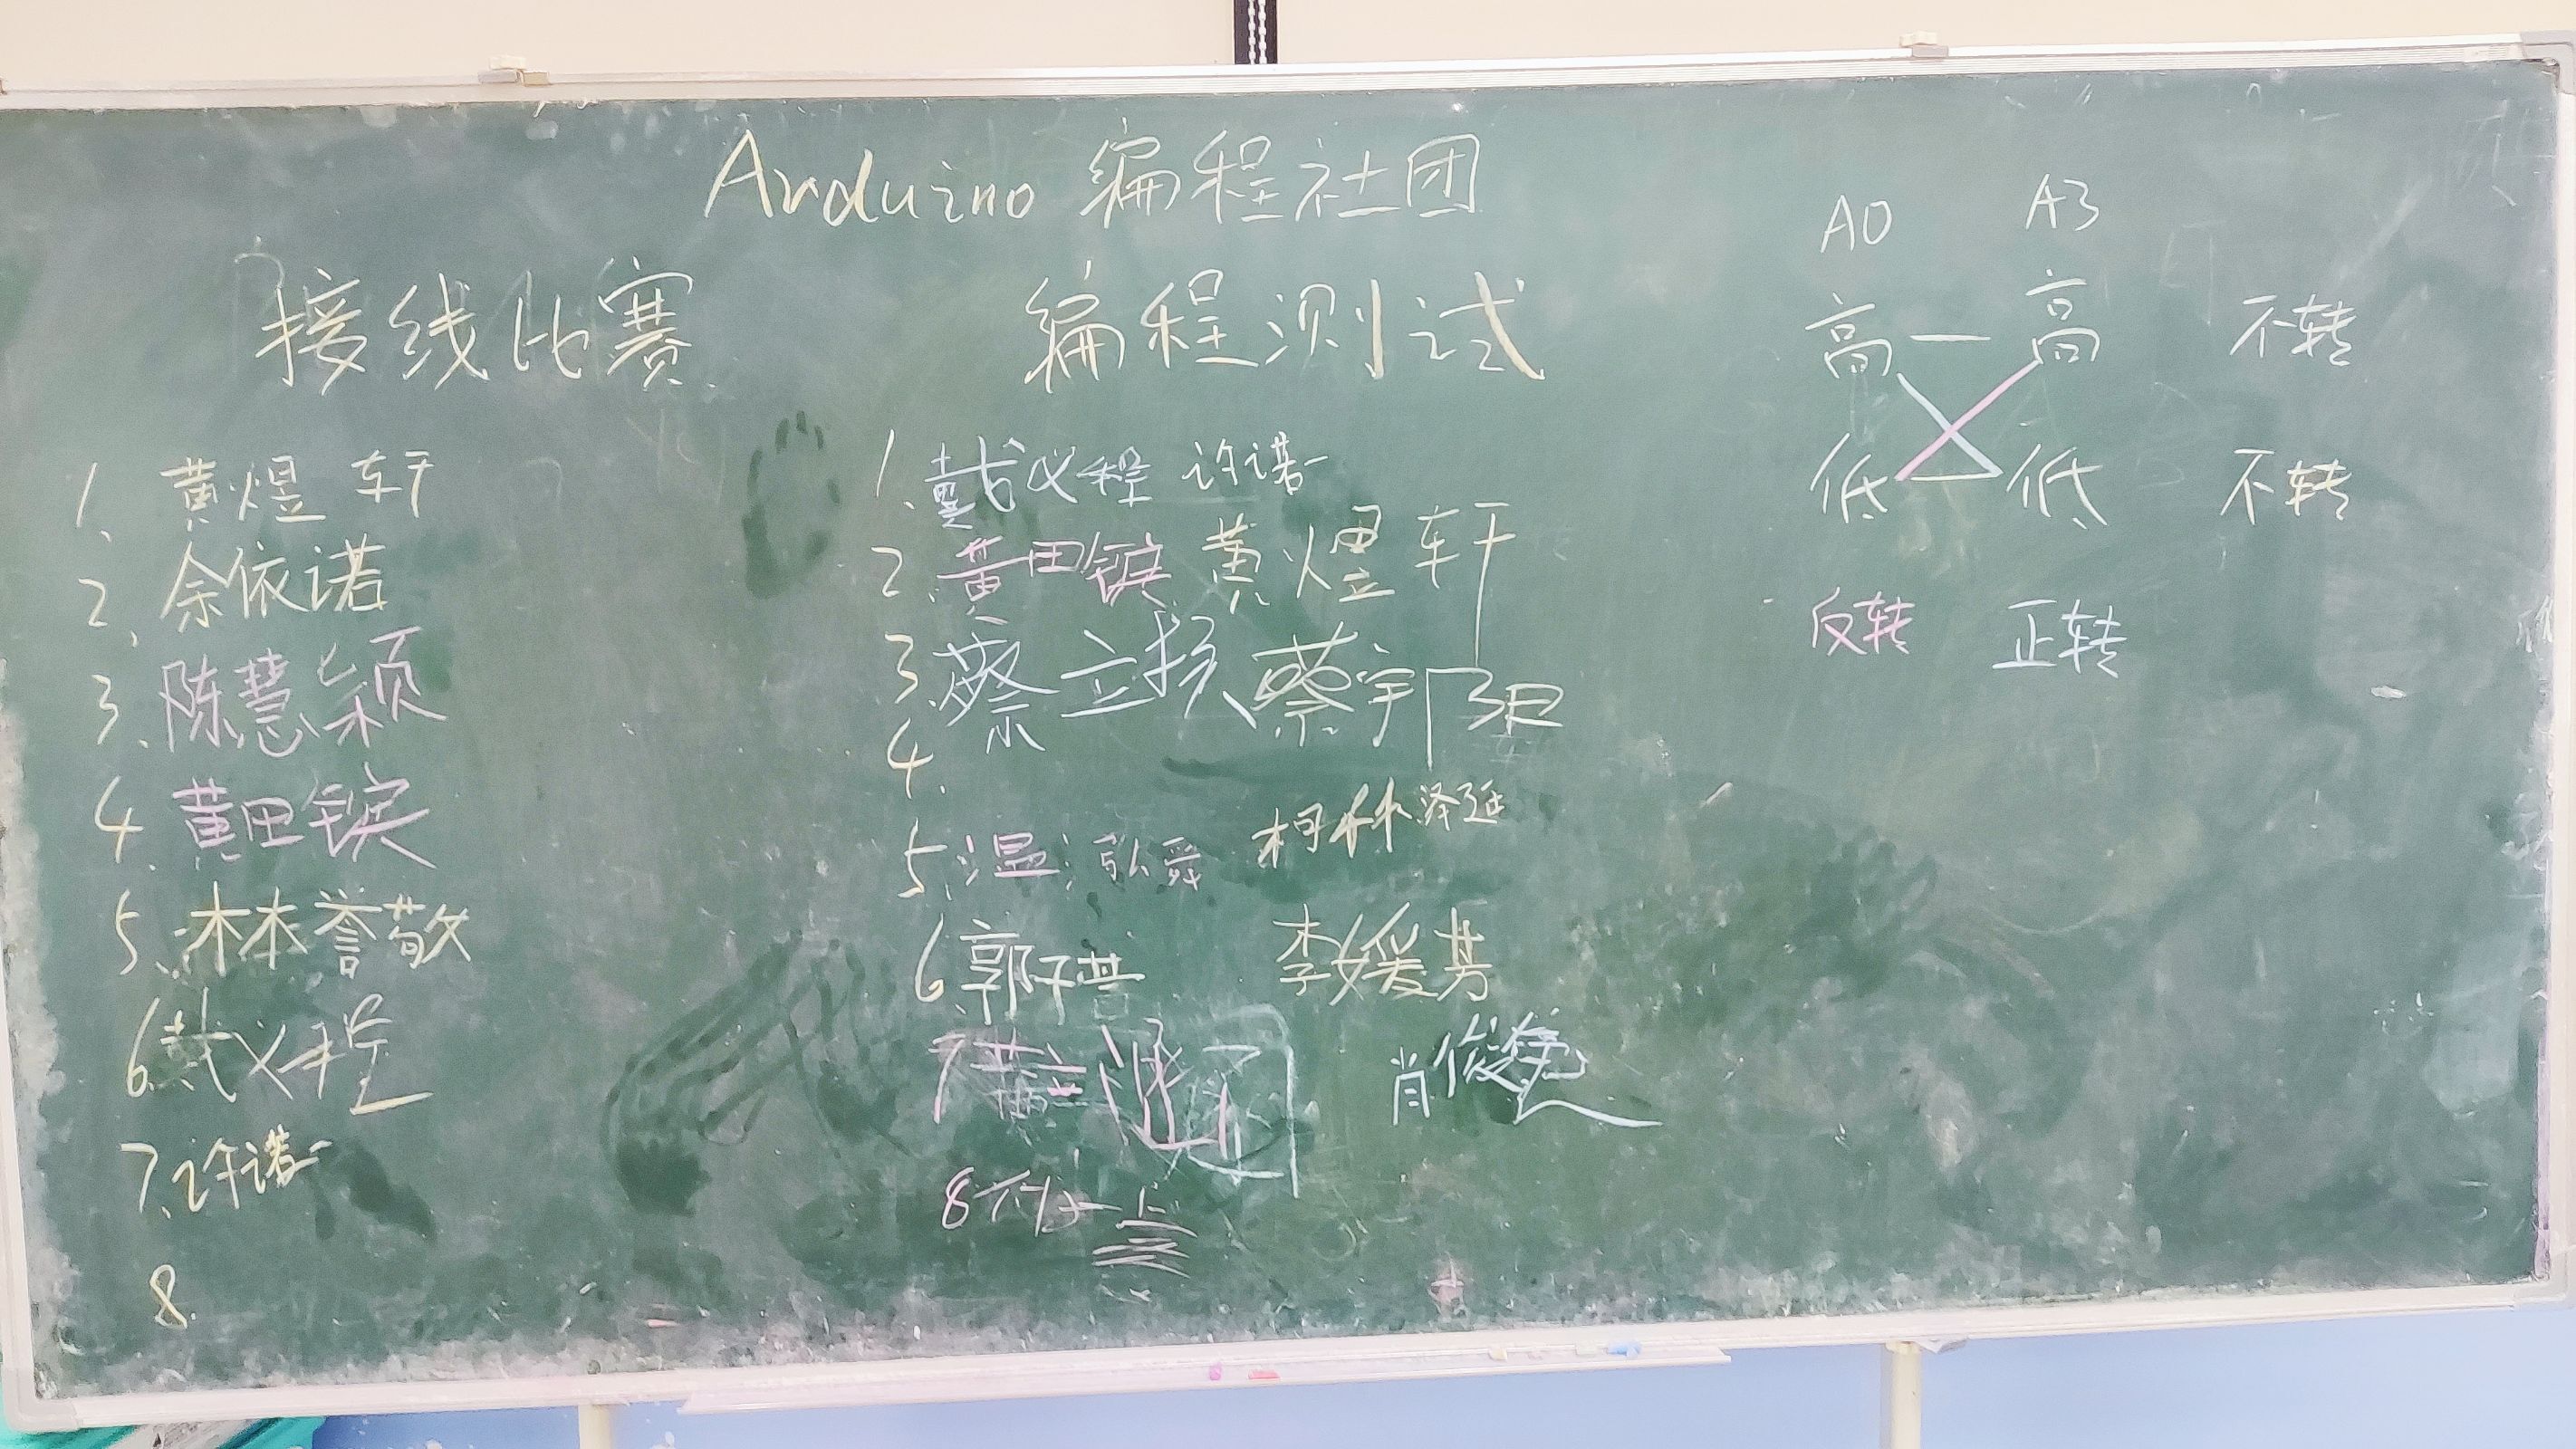 Arduino 编程社团
接线比赛
1、黄煜轩
2、余依诺
3、陈慧颖
4、黄田铵
5、林誉敬
6、戴义程
7、许诺一
8.
编程测试
1、戴义程 许诺一
2、黄田铵 黄煜轩
3、蔡立 蔡宇阳
4.
5、温 弘舜 柯林泽延
6、郭子萱 李媛芳
7
肖俊
8
A0 A3
高 — 高 不转
低 — 低 不转
反转 正转